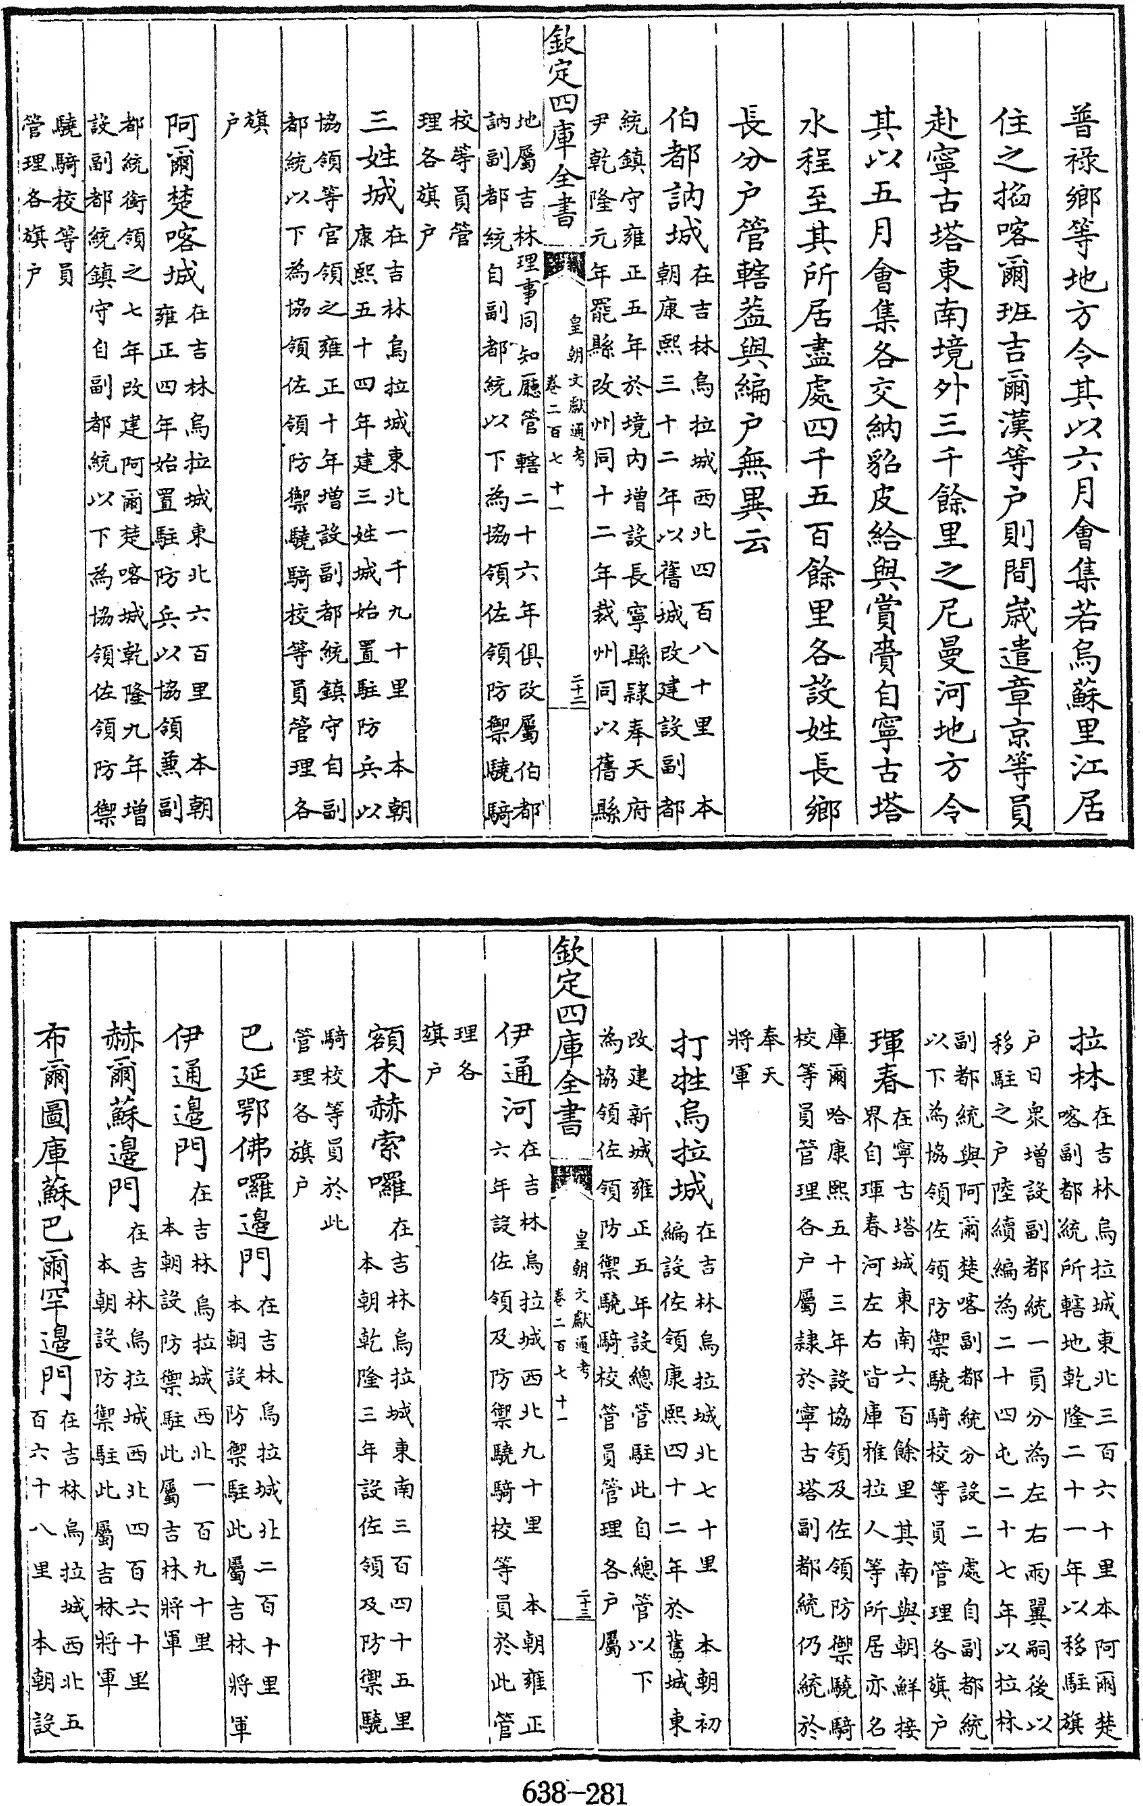 普祿鄉等地方令其以六月會集若烏蘇里江居
住之掐喀爾班吉爾漢等户則間歳遣章京等員
赴寧古塔東南境外三千餘里之尼曼河地方令
其以五月會集各交納貂皮給與賞賚自寧古塔
水程至其所居盡處四千五百餘里各設姓長鄉
長分户管轄葢與編户無異云
伯都訥城 在吉林烏拉城西北四百八十里 本
朝康熙三十二年以舊城改建設副都
統鎮守雍正五年於境内增設長寧縣隷奉天府
尹乾隆元年罷縣改州同十二年裁州同以舊縣
欽定四庫全書 皇朝文獻通考 卷二百七十一 二十二
地屬吉林理事同知廳管轄二十六年俱改屬伯都
訥副都統自副都統以下為協領佐領防禦驍騎
校等員管
理各旗户
三姓城 在吉林烏拉城東北一千九十里 本朝
康熙五十四年建三姓城始置駐防兵以
協領等官領之雍正十年增設副都統鎮守自副
都統以下為協領佐領防禦驍騎校等員管理各
旗
户
阿爾楚喀城 在吉林烏拉城東北六百里 本朝
雍正四年始置駐防兵以協領兼副
都統銜領之七年改建阿爾楚喀城乾隆九年增
設副都統鎮守自副都統以下為協領佐領防禦
驍騎校等員
管理各旗户
拉林 在吉林烏拉城東北三百六十里本阿爾楚
喀副都統所轄地乾隆二十一年以移駐旗
户日衆增設副都統一員分為左右兩翼嗣後以
移駐之户陸續編為二十四屯二十七年以拉林
副都統與阿爾楚喀副都統分設二處自副都統
以下為協領佐領防禦驍騎校等員管理各旗户
琿春 在寧古塔城東南六百餘里其南與朝鮮接
界自琿春河左右皆庫雅拉人等所居亦名
庫爾哈康熙五十三年設協領及佐領防禦驍騎
校等員管理各户屬隷於寧古塔副都統仍統於
奉天
將軍
打牲烏拉城 在吉林烏拉城北七十里 本朝初
編設佐領康熙四十二年於舊城東
改建新城雍正五年設總管駐此自總管以下
為協領佐領防禦驍騎校管員管理各户屬
欽定四庫全書 皇朝文獻通考 卷二百七十一 二十三
伊通河 在吉林烏拉城西北九十里 本朝雍正
六年設佐領及防禦驍騎校等員於此管
理各
旗户
額木赫索囉 在吉林烏拉城東南三百四十五里
本朝乾隆三年設佐領及防禦驍
騎校等員於此
管理各旗户
巴延鄂佛囉邊門 在吉林烏拉城北二百十里
本朝設防禦駐此屬吉林將軍
伊通邊門 在吉林烏拉城西北一百九十里
本朝設防禦駐此屬吉林將軍
赫爾蘇邊門 在吉林烏拉城西北四百六十里
本朝設防禦駐此屬吉林將軍
布爾圖庫蘇巴爾罕邊門 在吉林烏拉城西北五
百六十八里 本朝設
638-281